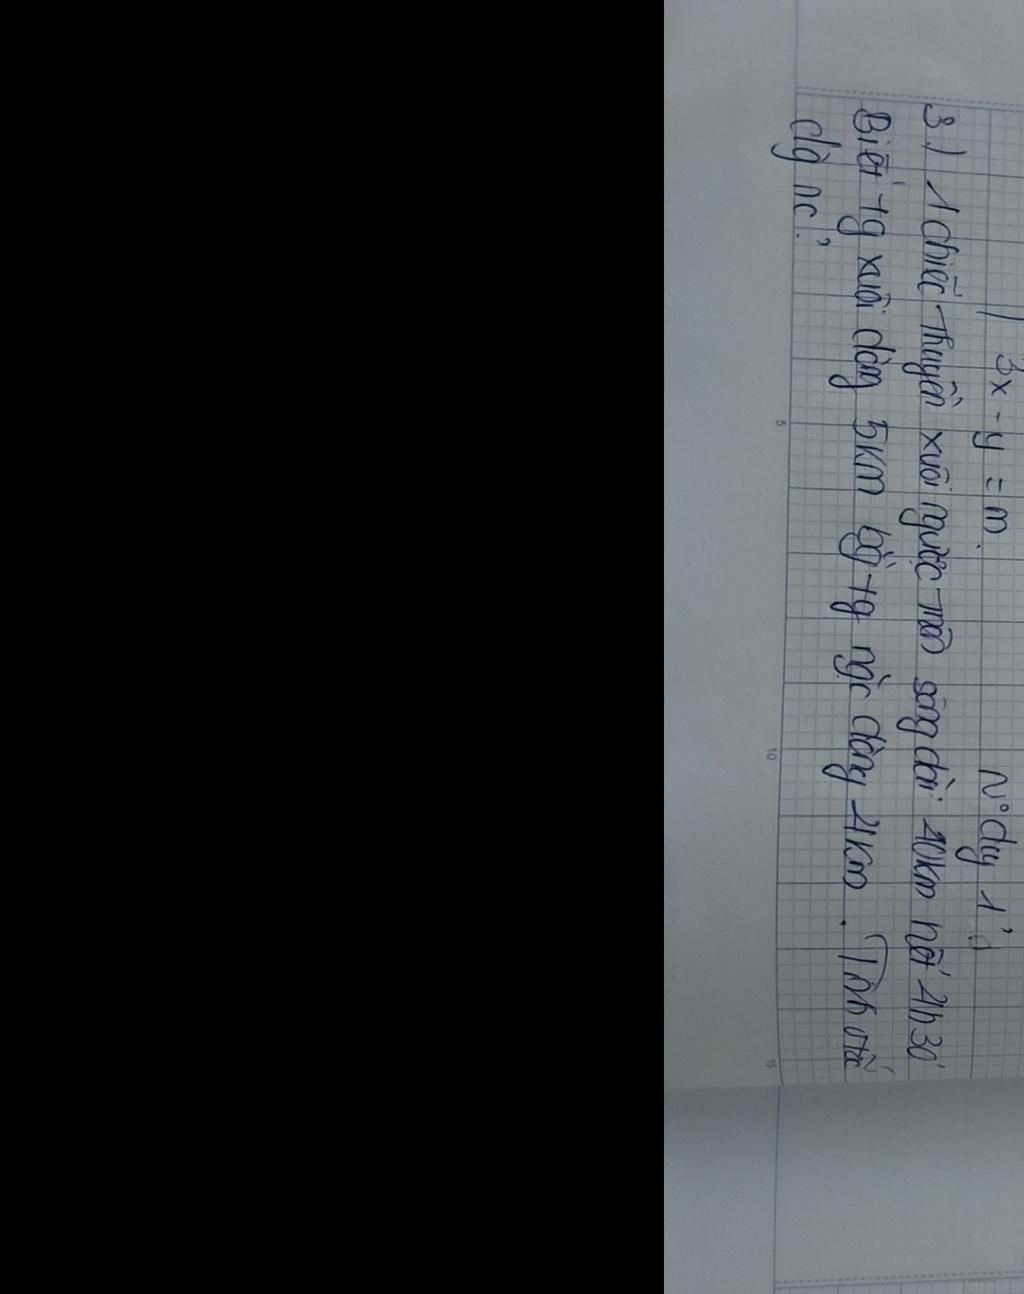 3x - y = m.
N° dy 1
3.) 1 chiếc thuyền xuôi ngược trên sông dài 40km hết 4h30'
Biết tg xuôi dòng 5km bg tg ngc dòng 4km. Tính vtốc
dg nc?
5
10
15